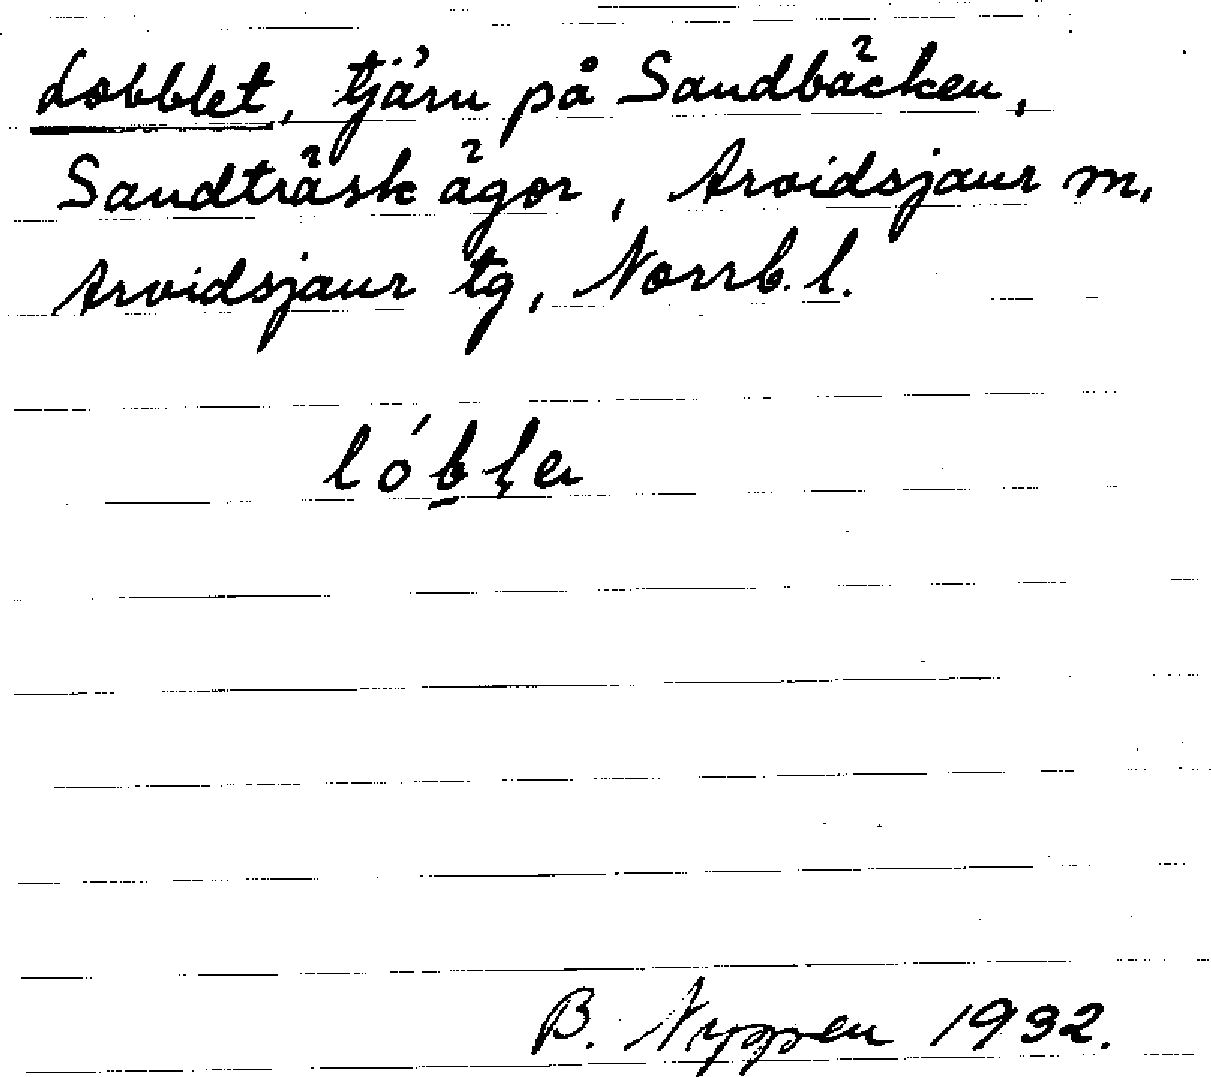 Lobblet, tjärn på Sandbäcken,
Sandträsk ägor, Arvidsjaur m.
Arvidsjaur tg, Norrb. l.
lób̲l̥e
B. Nyppen 1932.